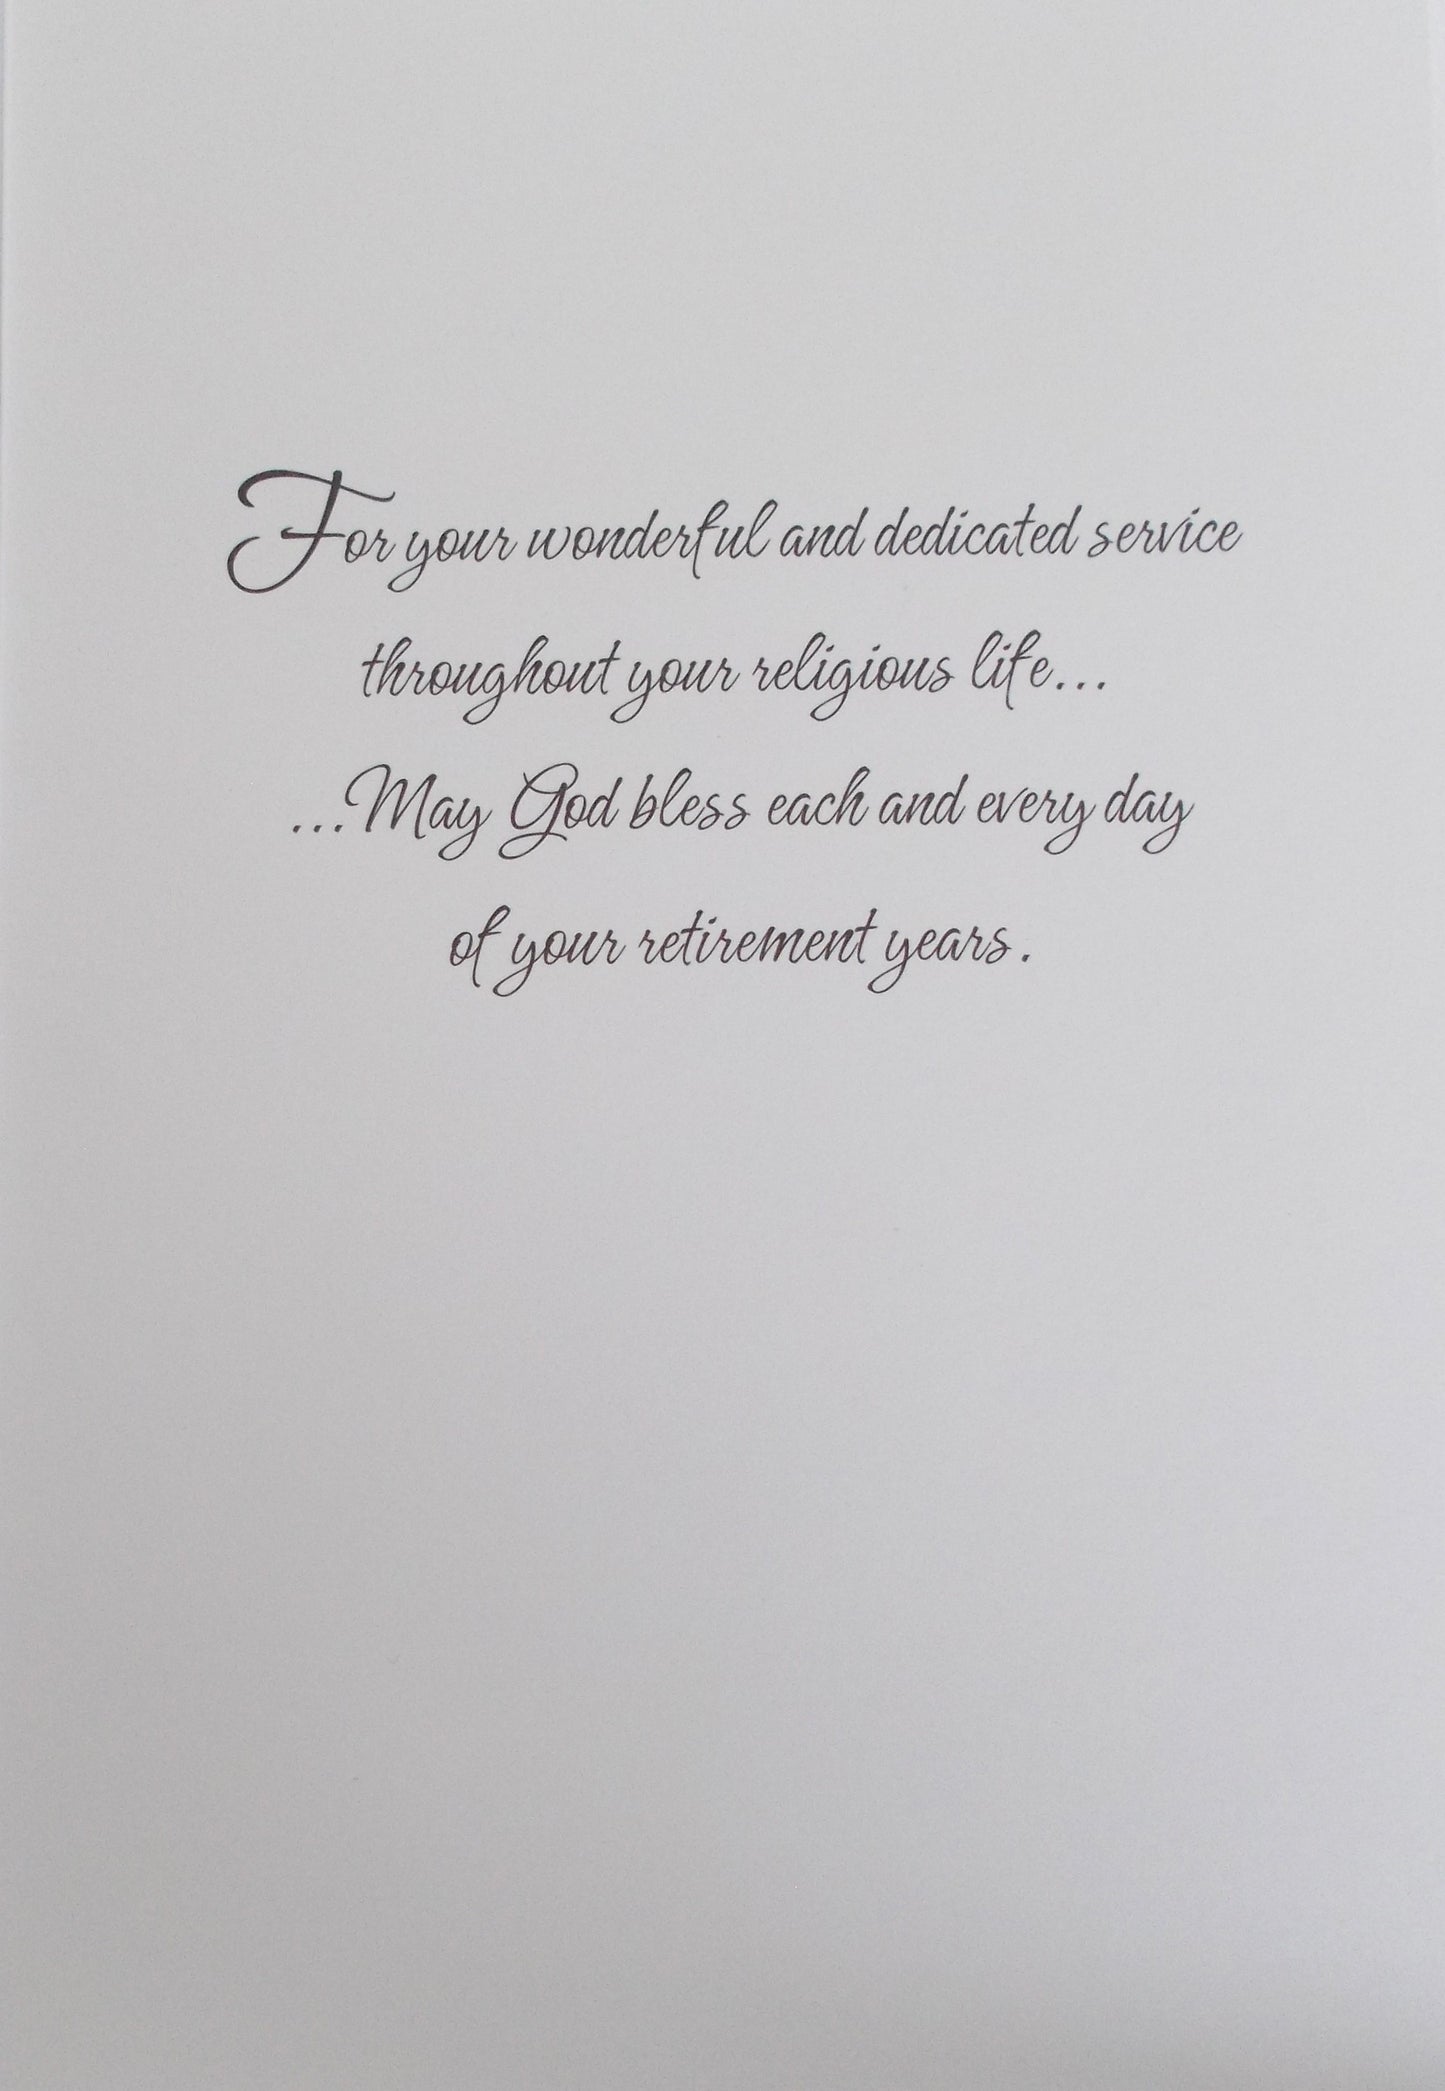 For your wonderful and dedicated service
throughout your religious life...
...May God bless each and every day
of your retirement years.